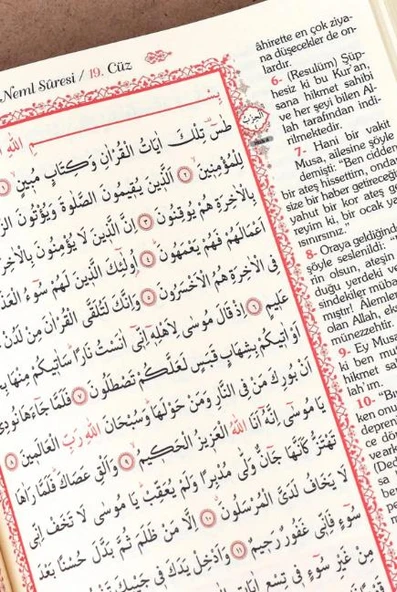 Neml Sûresi / 19. Cüz
طٰسٓ تِلْكَ اٰيَاتُ الْقُرْاٰنِ وَكِتَابٍ مُبٖينٍ ١
لِلْمُؤْمِنٖينَ ٢ اَلَّذٖينَ يُقٖيمُونَ الصَّلٰوةَ وَيُؤْتُونَ
بِالْاٰخِرَةِ هُمْ يُوقِنُونَ ٣ اِنَّ الَّذٖينَ لَا يُؤْمِنُونَ بِالْاٰخِرَةِ
اَعْمَالَهُمْ فَهُمْ يَعْمَهُونَ ٤ اُولٰٓئِكَ الَّذٖينَ لَهُمْ سُٓوءُ
فِى الْاٰخِرَةِ هُمُ الْاَخْسَرُونَ ٥ وَاِنَّكَ لَتُلَقَّى الْقُرْاٰنَ مِنْ لَدُنْ
عَلٖيمٍ ٦ اِذْ قَالَ مُوسٰى لِاَهْلِهٖٓ اِنّٖٓى اٰنَسْتُ نَارًا سَاٰتٖيكُمْ مِنْهَا
اَوْ اٰتٖيكُمْ بِشِهَابٍ قَبَسٍ لَعَلَّكُمْ تَصْطَلُونَ ٧ فَلَمَّا جَٓاءَهَا نُودِىَ
اَنْ بُورِكَ مَنْ فِى النَّارِ وَمَنْ حَوْلَهَا وَسُبْحَانَ اللّٰهِ رَبِّ الْعَالَمٖينَ ٨
يَا مُوسٰٓى اِنَّهُٓ اَنَا اللّٰهُ الْعَزٖيزُ الْحَكٖيمُ ٩ وَاَلْقِ عَصَاكَ فَلَمَّا رَاٰهَا
تَهْتَزُّ كَاَنَّهَا جَٓانٌّ وَلّٰى مُدْبِرًا وَلَمْ يُعَقِّبْ يَا مُوسٰى لَا تَخَفْ اِنّٖى
لَا يَخَافُ لَدَىَّ الْمُرْسَلُونَ ١٠ اِلَّا مَنْ ظَلَمَ ثُمَّ بَدَّلَ حُسْنًا بَعْدَ
سُٓوءٍ فَاِنّٖى غَفُورٌ رَحٖيمٌ ١١ وَاَدْخِلْ يَدَكَ فٖى جَيْبِكَ
مِنْ غَيْرِ سُٓوءٍ فٖى تِسْعِ
âhirette en çok ziya-
na düşecekler de on-
lardır.
6- (Resulüm) Şüp-
hesiz ki bu Kur'an,
sana hikmet sahibi
ve her şeyi bilen Al-
lah tarafından indi-
rilmektedir.
7- Hani bir vakit
Musa, ailesine şöyle
demişti: "Ben cidden
bir ateş hissettim, ondan
size bir haber getireceğim
yahut bir kor ateş
reyim ki, bir ocak
ısınırsınız."
8- Oraya geldiğinde
şöyle seslenildi:
rin olsun, ateşin
duğu yerdeki ve
sindekiler
mıştır! Âlemlerin
olan Allah,
münezzehtir.
9- Ey Musa
ki ben
hikmet
lah'ım.
10- "